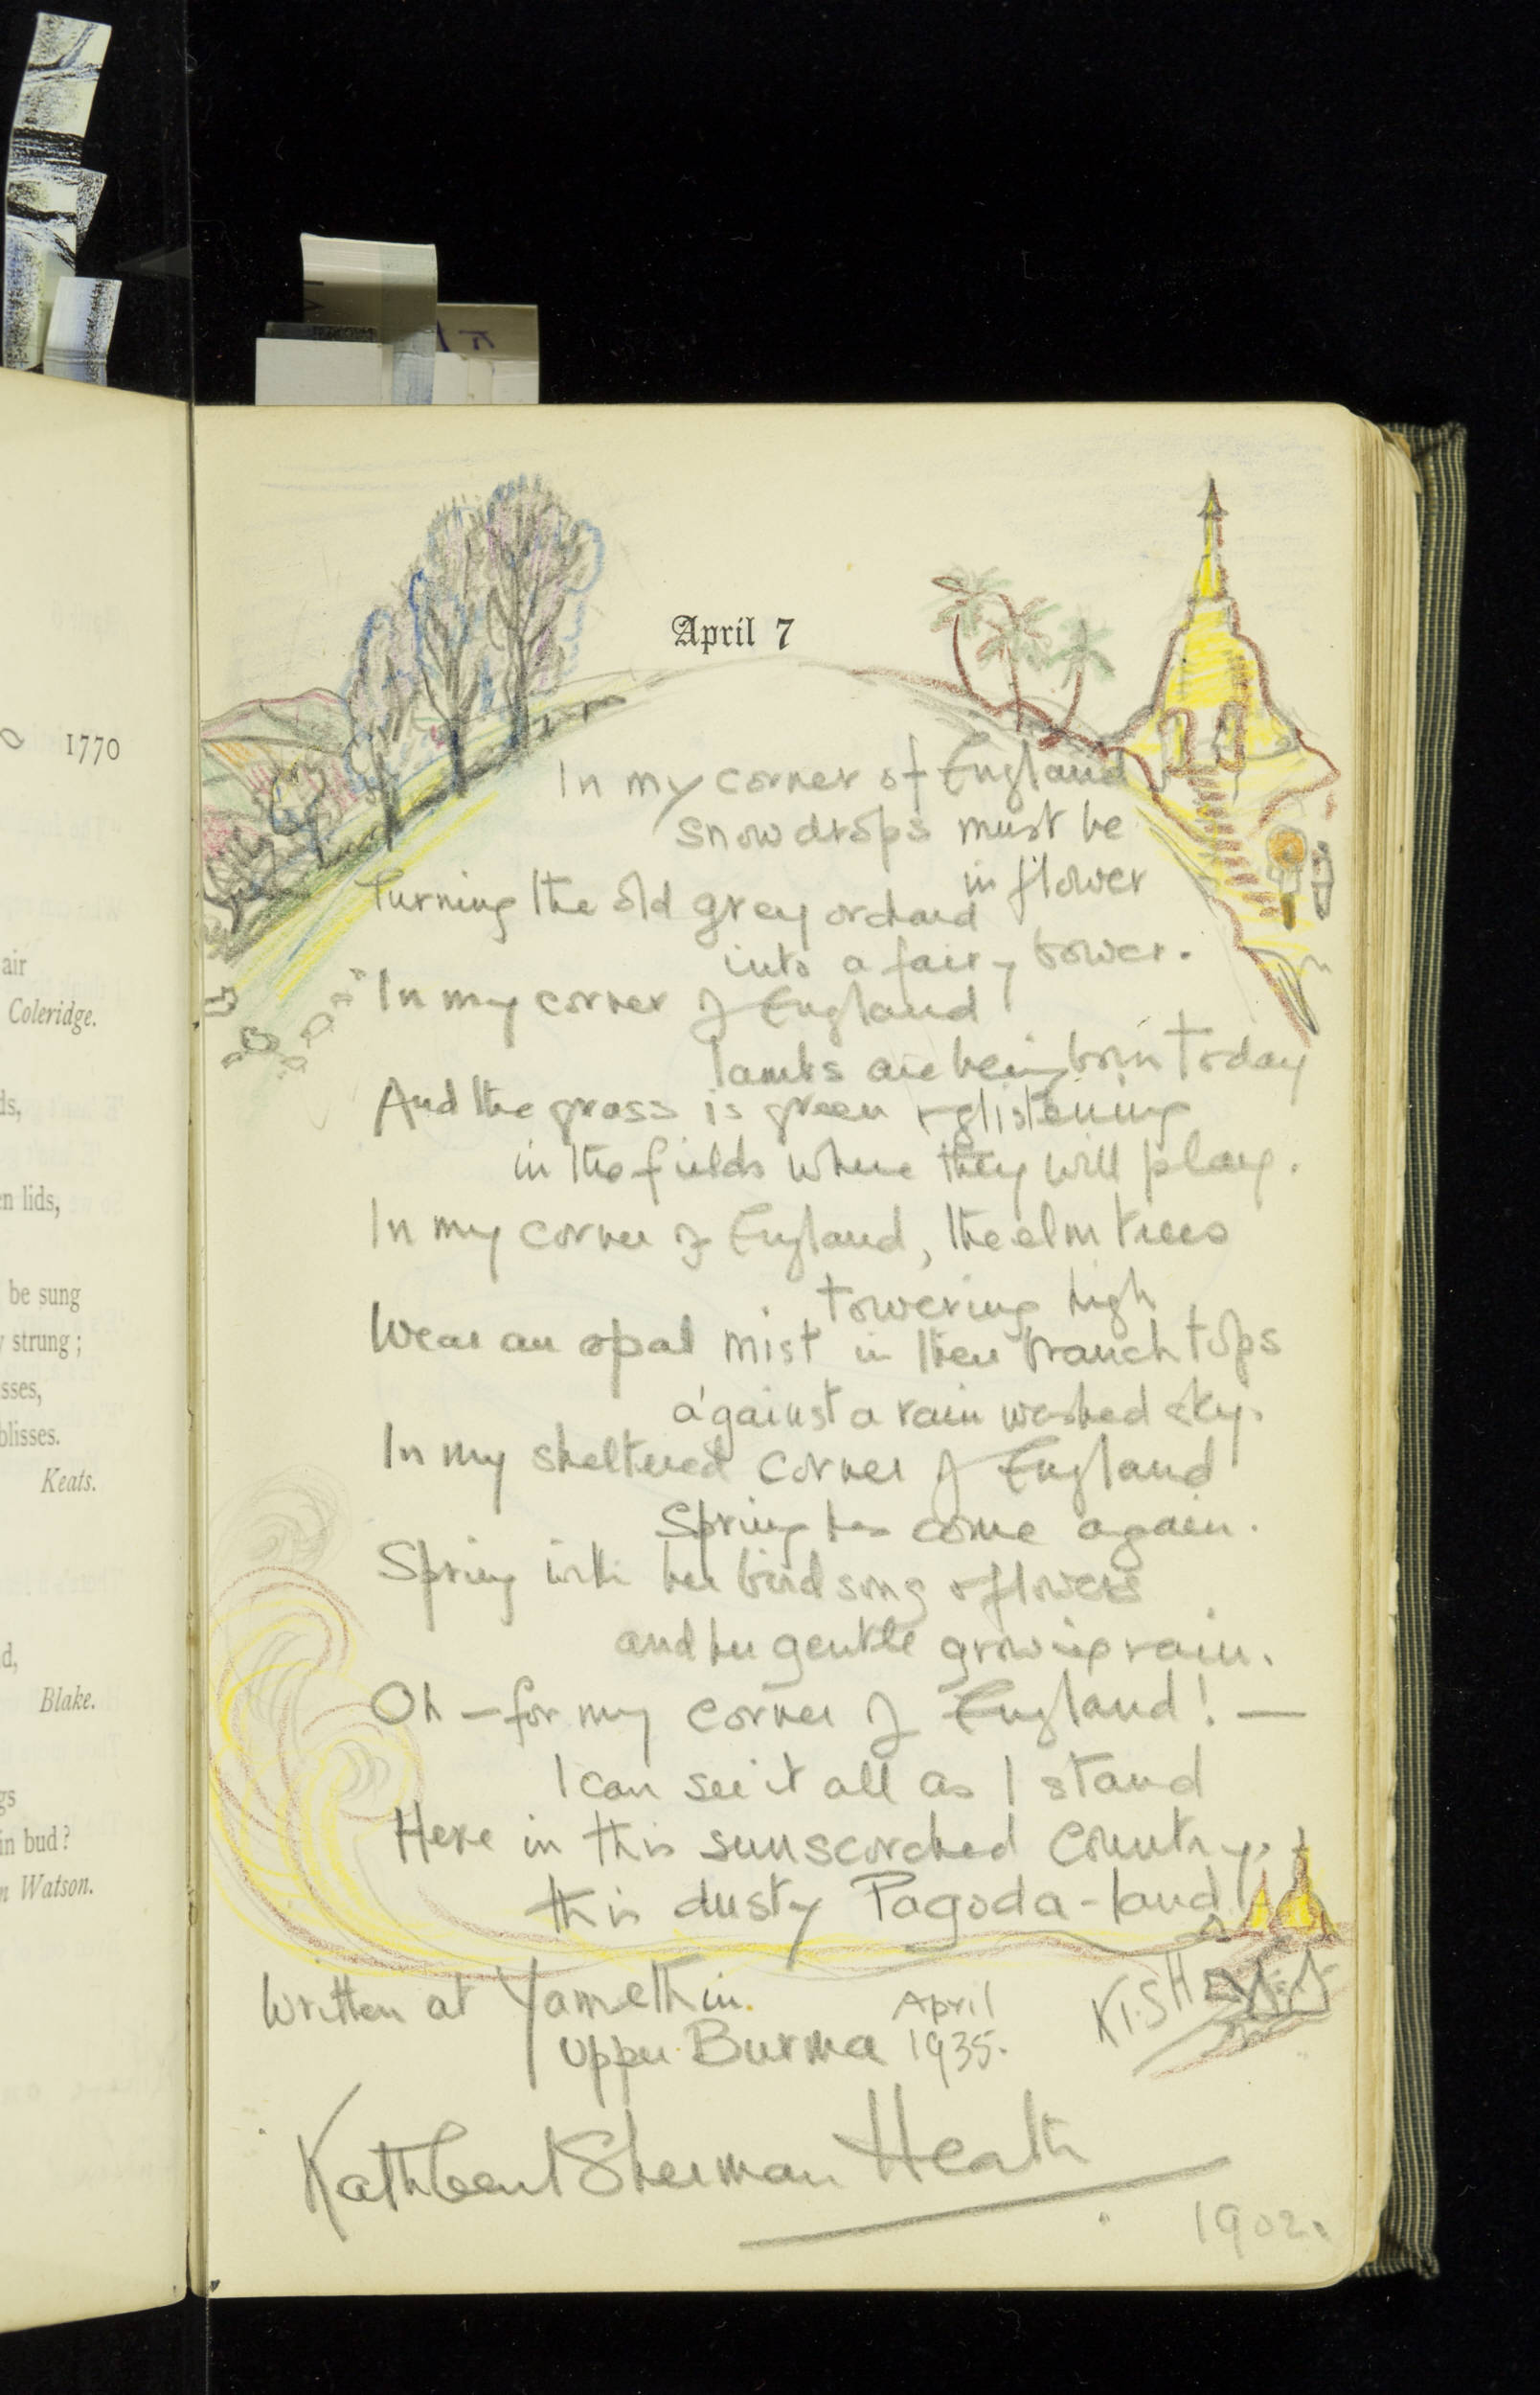 1770
air
Coleridge.
ds,
en lids,
be sung
y strung;
sses,
blisses.
Keats.
d,
Blake.
gs
in bud?
Watson.
April 7
In my corner of England
snowdrops must be
in flower
Turning the old grey orchard
into a fairy bower.
In my corner of England
lambs are being born today
And the grass is green & glistening
in the fields where they will play.
In my corner of England, the elm trees
towering high
Wear an opal mist in their branch tops
against a rain washed sky.
In my sheltered corner of England
Spring has come again.
Spring with her bird song & flowers
and her gentle growing rain.
Oh – for my corner of England! —
I can see it all as I stand
Here in this sunscorched country,
this dusty Pagoda-land!
Written at Yamethin.
Upper Burma
April
1935.
K.SH
Kathleen Sherman Heath
1902.